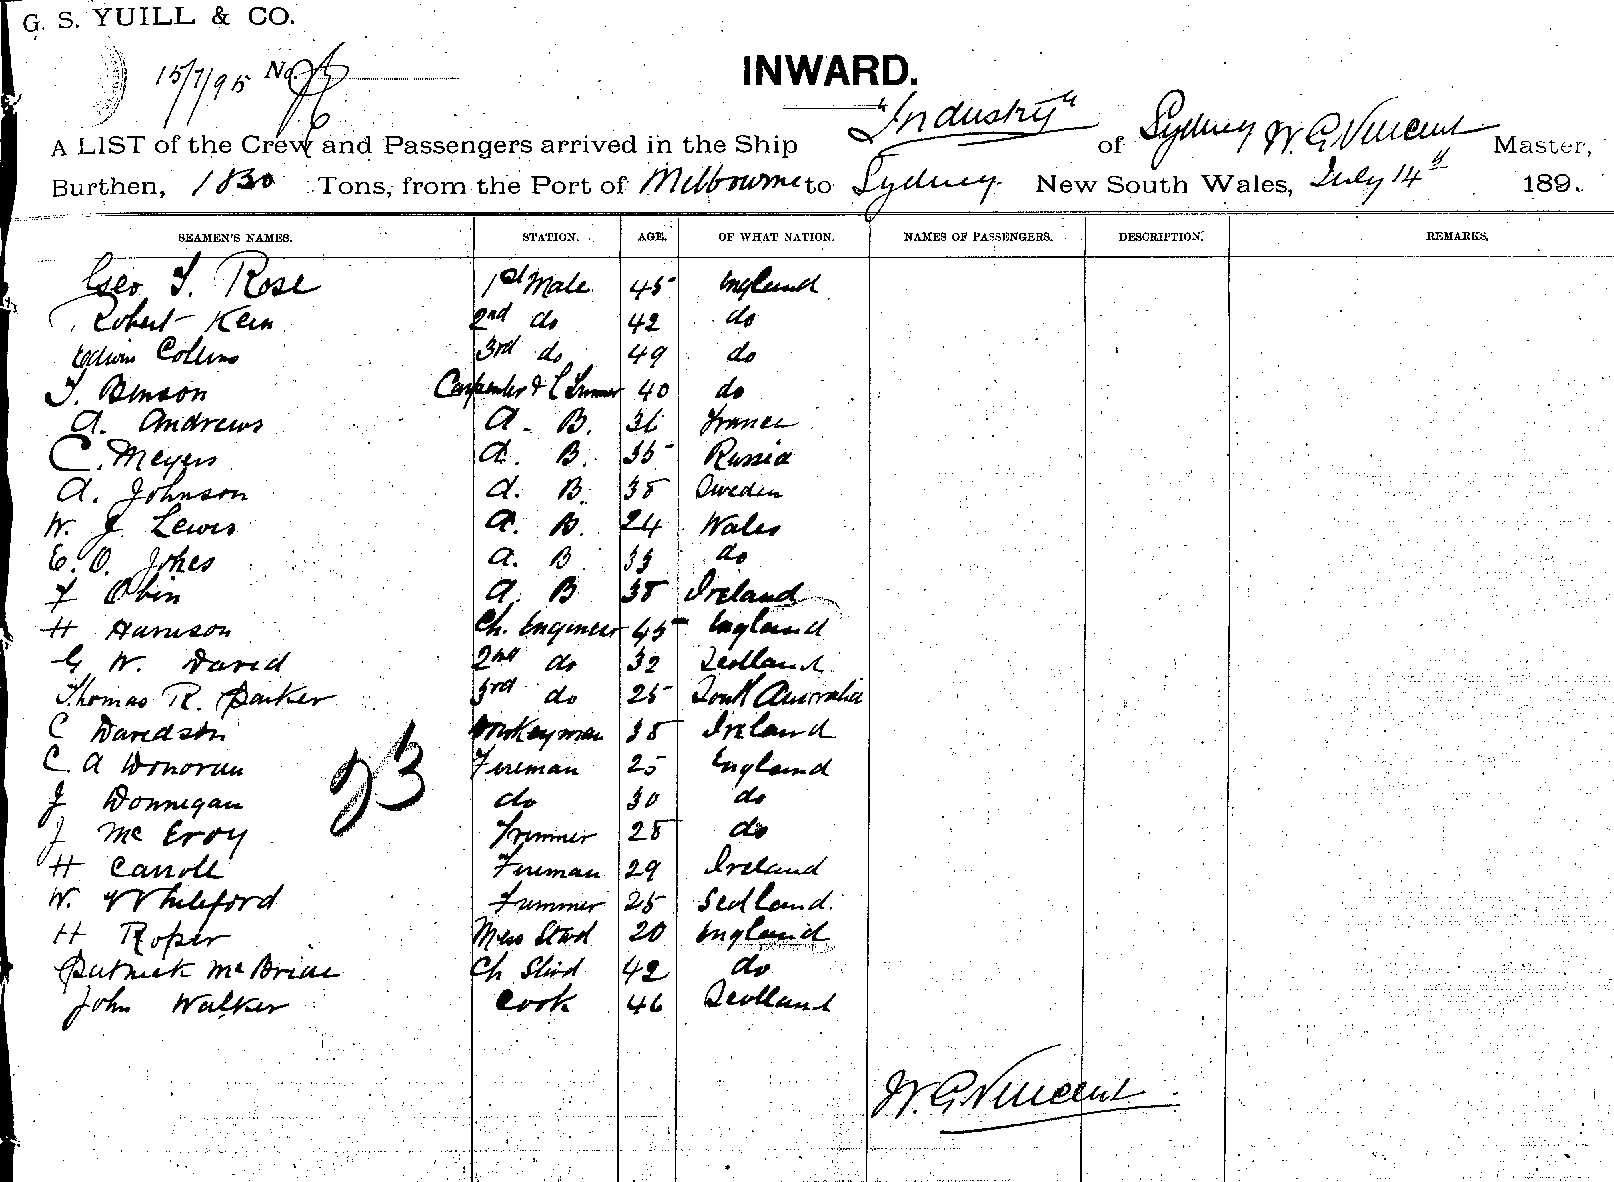 G. S. YUILL & CO.
15/7/95 No.
INWARD.
A LIST of the Crew and Passengers arrived in the Ship "Industry" of Sydney W. G. Vincent Master,
Burthen, 1830 Tons, from the Port of Melbourne to Sydney New South Wales, July 14th 189
SEAMEN'S NAMES. STATION. AGE. OF WHAT NATION. NAMES OF PASSENGERS. DESCRIPTION. REMARKS.
Geo T. Rose 1st Mate 45 England
Robert Kein 2nd do 42 do
Edwin Collins 3rd do 49 do
T. Benson Carpenter & 40 do
A. Andrews A. B. 36 France
C. Meyers A. B. 35 Russia
A. Johnson A. B. 38 Sweden
W. J. Lewis A. B. 24 Wales
E. O. Jones A. B 33 do
F Obin A. B 38 Ireland
H Harrison Ch. Engineer 45 England
G W. David 2nd do 32 Scotland
Thomas R. Parker 3rd do 25 South Australia
C Davidson Donkeyman 38 Ireland
C A Donovan Fireman 25 England
23
J Donnegan do 30 do
J McEroy Trimmer 28 do
H Carroll Fireman 29 Ireland
W. Whiteford Trimmer 25 Scotland.
H Roper Mess Stwd 20 England
Patrick McBride Ch Stwd 42 do
John Walker Cook 46 Scotland
W. G. Vincent